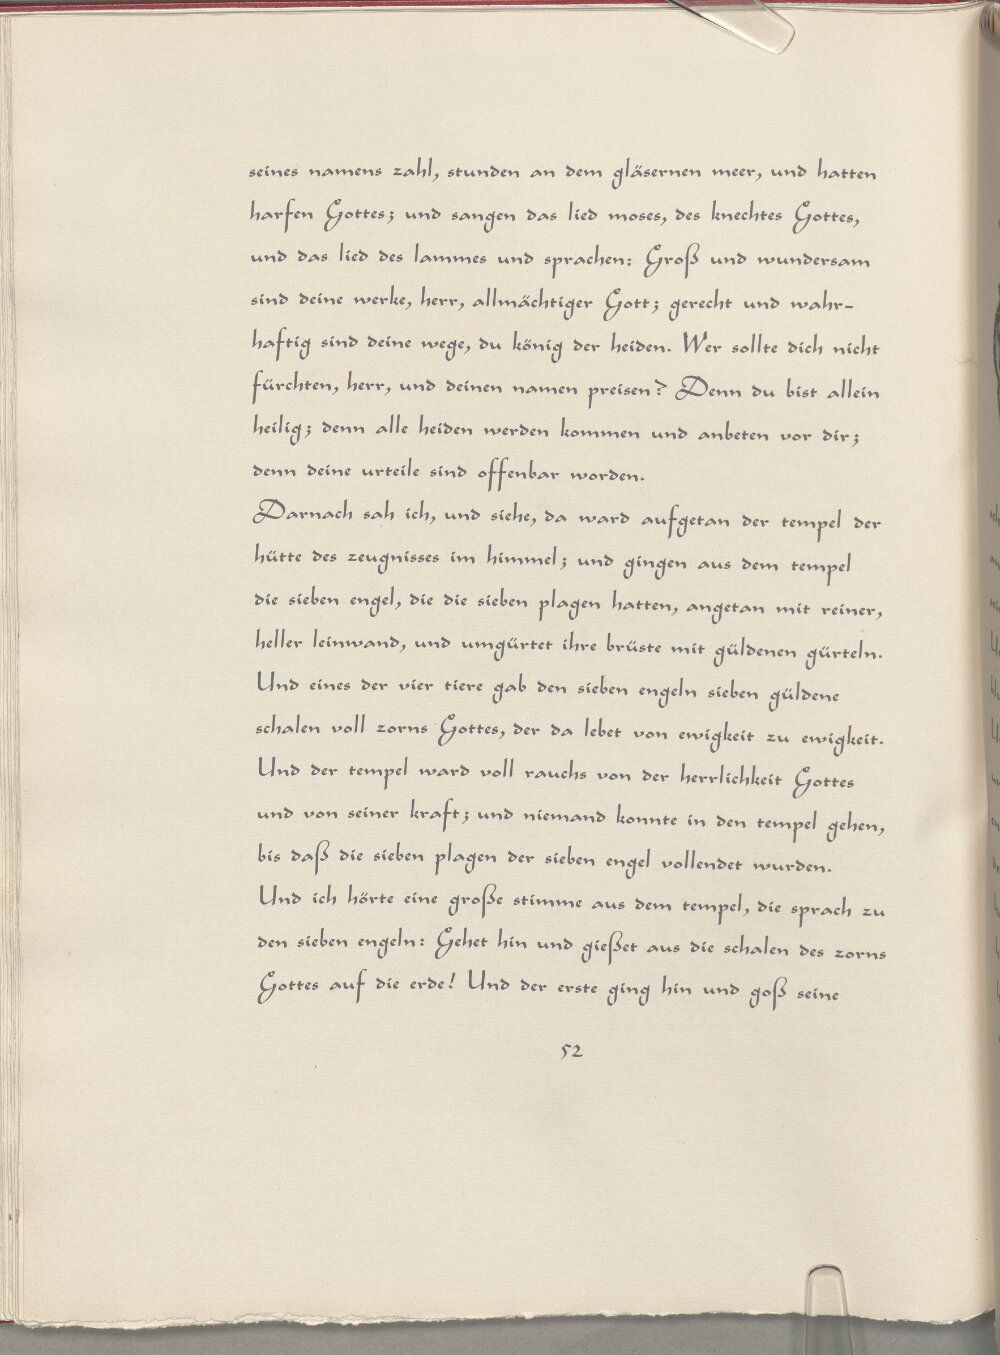 seines namens zahl, stunden an dem gläsernen meer, und hatten
harfen Gottes; und sangen das lied moses, des knechtes Gottes,
und das lied des lammes und sprachen: Groß und wundersam
sind deine werke, herr, allmächtiger Gott; gerecht und wahr-
haftig sind deine wege, du könig der heiden. Wer sollte dich nicht
fürchten, herr, und deinen namen preisen? Denn du bist allein
heilig; denn alle heiden werden kommen und anbeten vor dir;
denn deine urteile sind offenbar worden.
Darnach sah ich, und siehe, da ward aufgetan der tempel der
hütte des zeugnisses im himmel; und gingen aus dem tempel
die sieben engel, die die sieben plagen hatten, angetan mit reiner,
heller leinwand, und umgürtet ihre brüste mit güldenen gürteln.
Und eines der vier tiere gab den sieben engeln sieben güldene
schalen voll zorns Gottes, der da lebet von ewigkeit zu ewigkeit.
Und der tempel ward voll rauchs von der herrlichkeit Gottes
und von seiner kraft; und niemand konnte in den tempel gehen,
bis daß die sieben plagen der sieben engel vollendet wurden.
Und ich hörte eine große stimme aus dem tempel, die sprach zu
den sieben engeln: Gehet hin und gießet aus die schalen des zorns
Gottes auf die erde! Und der erste ging hin und goß seine
52